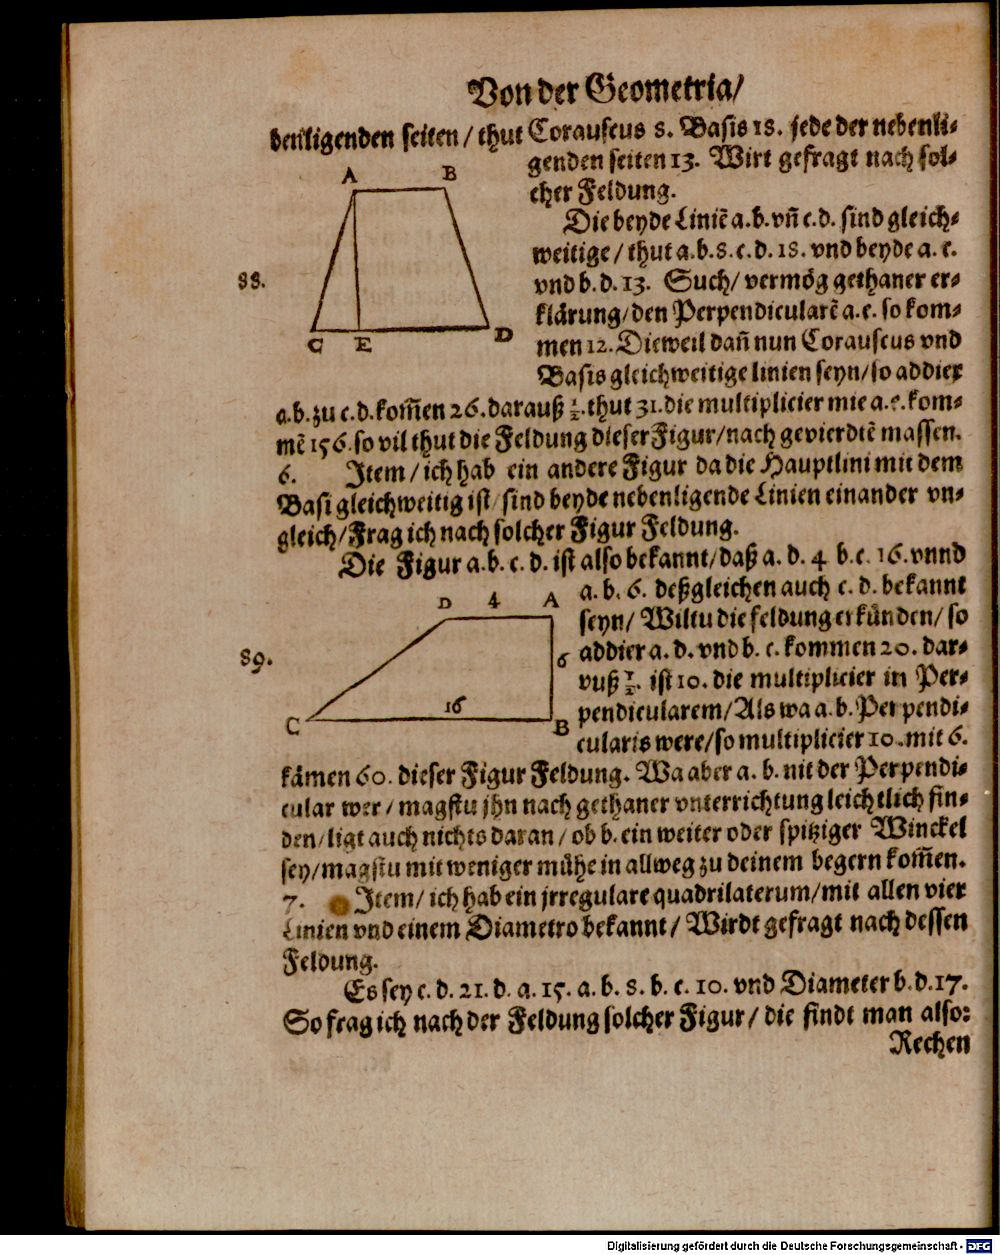 Von der Geometria/
benligenden seiten / thut Corauscus 8. Basis 18. jede der nebenli-
genden seiten 13. Wirt gefragt nach sol-
cher Feldung.
A B
Die beyde Liniē a.b. vñ c.d. sind gleich-
weitige / thut a.b. 8. c.d. 18. vnd beyde a. c.
88.
vnd b. d. 13. Such / vermög gethaner er-
klärung / den Perpendicularē a.e. so kom-
C E D
men 12. Dieweil dañ nun Corauscus vnd
Basis gleichweitige linien seyn / so addier
a.b. zu c.d. kom̄en 26. darauß ½. thut 31. die multiplicier mit a.e. kom-
mē 156. so vil thut die Feldung dieser Figur / nach gevierdtē massen.
6. Item / ich hab ein andere Figur da die Hauptlini mit dem
Basi gleichweitig ist / sind beyde nebenligende Linien einander vn-
gleich / Frag ich nach solcher Figur Feldung.
Die Figur a.b. c. d. ist also bekannt / daß a. d. 4 b.c. 16. vnnd
a. b. 6. deßgleichen auch c. d. bekannt
D 4 A
seyn / Wiltu die feldung erkünden / so
89.
6
addier a. d. vnd b. c. kommen 20. dar-
vuß ½. ist 10. die multiplicier in Per-
16
pendicularem / Als wa a.b. Perpendi-
C B
cularis were / so multiplicier 10. mit 6.
kämen 60. dieser Figur Feldung. Wa aber a. b. nit der Perpendi-
cular wer / magstu jhn nach gethaner vnterrichtung leichtlich fin-
den / ligt auch nichts daran / ob b. ein weiter oder spitziger Winckel
sey / magstu mit weniger mühe in allweg zu deinem begern kom̄en.
7. Item / ich hab ein jrregulare quadrilaterum / mit allen vier
Linien vnd einem Diametro bekannt / Wirdt gefragt nach dessen
Feldung.
Es sey c. d. 21. d. a. 15. a. b. 8. b. c. 10. vnd Diameter b. d. 17.
So frag ich nach der Feldung solcher Figur / die findt man also:
Rechen
Digitalisierung gefördert durch die Deutsche Forschungsgemeinschaft - DFG